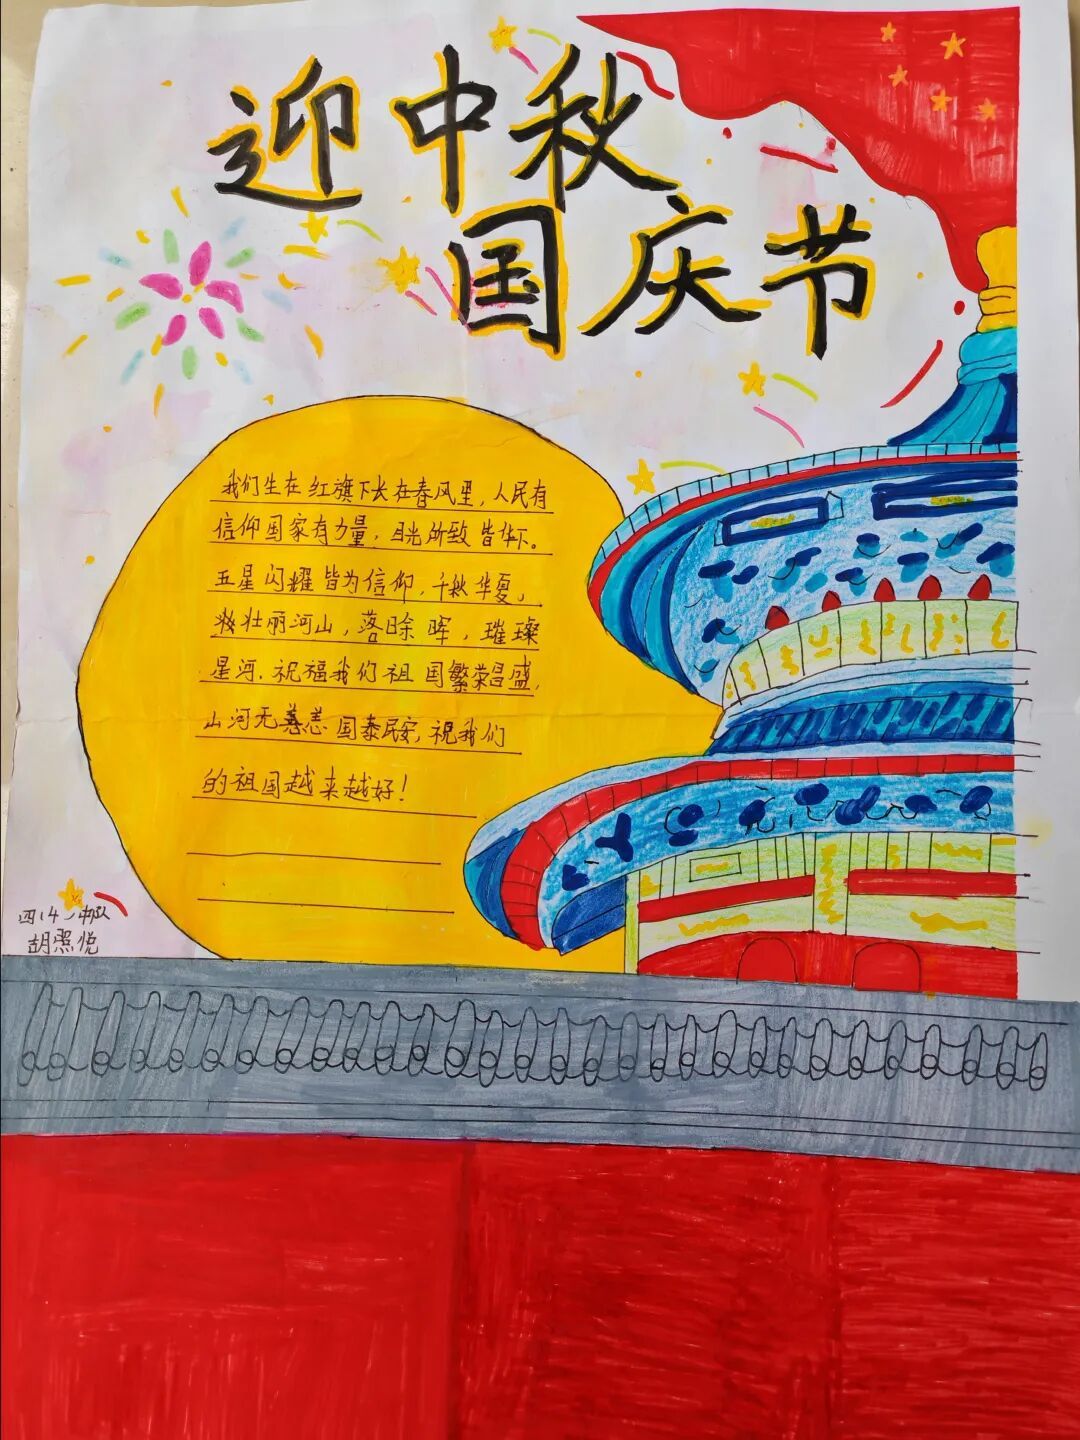 迎中秋
国庆节
我们生在红旗下长在春风里，人民有
信仰国家有力量，目光所致皆华下。
五星闪耀皆为信仰，千秋华夏。
壮丽河山，落日余晖，璀璨
星河.祝福我们祖国繁荣昌盛，
山河无恙 国泰民安，祝我们
的祖国越来越好！
四(4)中队
胡熙悦